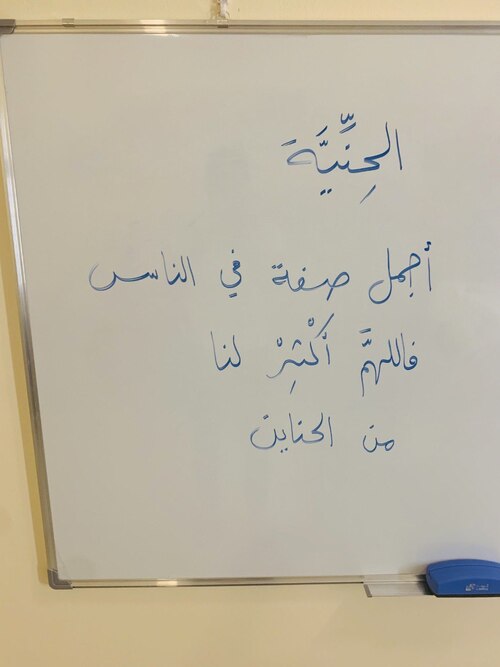 الحِنِّيَّةَ
أجمل صفة في الناس
فاللهمَّ أكْثِرْ لنا
من الحناين